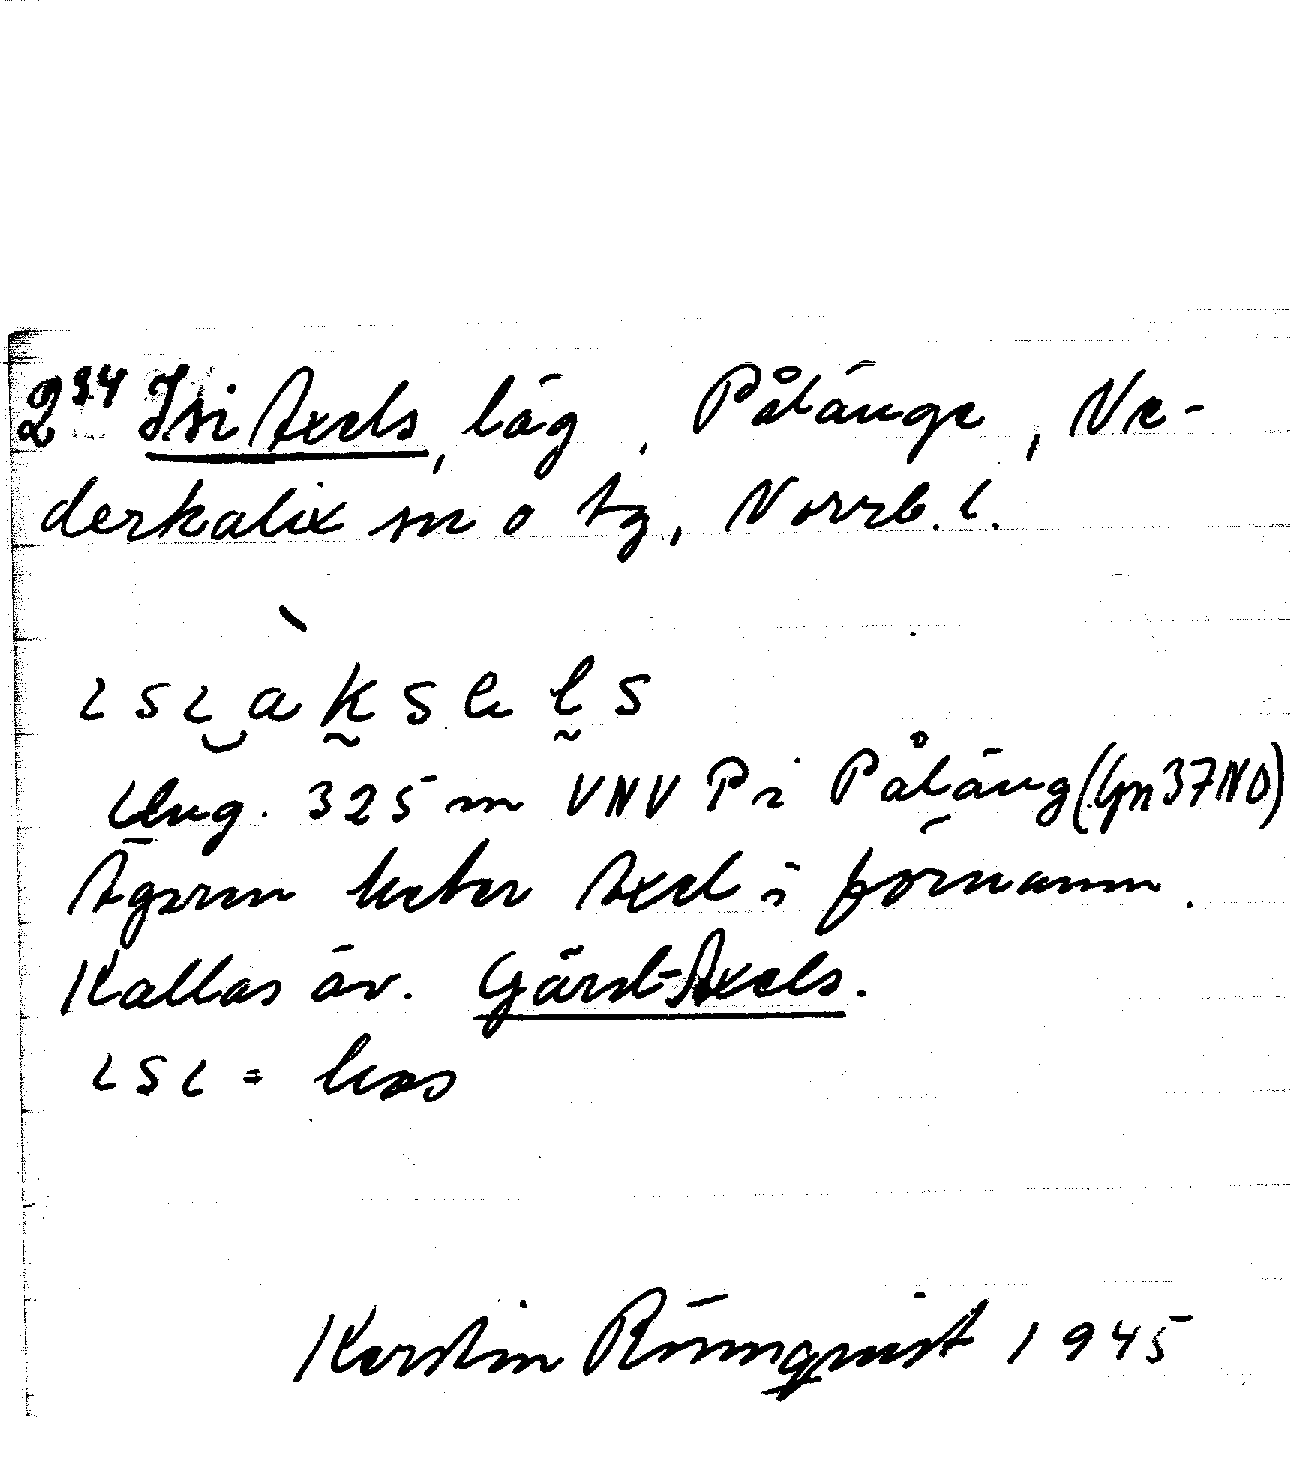 2³⁴ Isi Axels, läg, Pålänge, Ne-
derkalix sn o tg, Norrb. l.
ısı‿àksels
Ung. 325 m VNV P i Påläng (Gn 37 NO)
Ägaren heter Axel i förnamn.
Kallas äv. Gärd-Axels.
ısı = hos
Kerstin Rönnqvist 1945